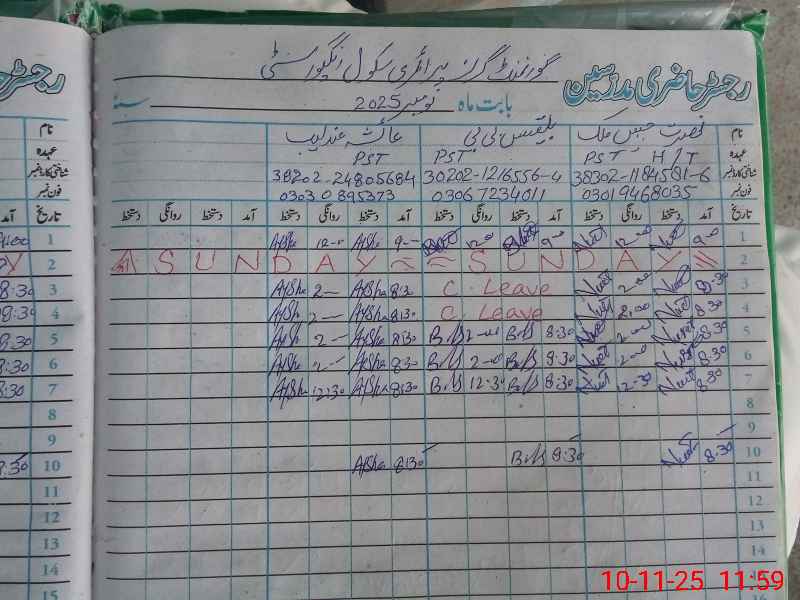 گورنمنٹ گرلز پرائمری سکول رنگپور سٹی
رجسٹر حاضری مدرسین
بابت ماہ نومبر 2025 سنہ
نام نصرت جبیں ملک بلقیس بی بی عائشہ عندلیب نام
عہدہ PST H/T PST PST عہدہ
شناختی کارڈ نمبر 38302-1184581-6 30202-1216556-4 38202-24805684 شناختی کارڈ نمبر
فون نمبر 03019468035 03067234011 03030895373 فون نمبر
تاریخ آمد دستخط روانگی دستخط آمد دستخط روانگی دستخط آمد دستخط روانگی دستخط آمد دستخط روانگی دستخط تاریخ آمد
1 9-00 12-00 9-00 12-00 9-00 Aisha 12-00 Aisha 1
2 SUNDAY = = SUNDAY 2
3 8:30 2-00 C. Leave 8:30 Aisha 2- Aisha 3 8:30
4 8:30 2:00 C. Leave 8:30 Aisha 2- Aisha 4 8:30
5 8:30 2-00 8:30 2-00 8:30 Aisha 2- Aisha 5 8:30
6 8:30 2-00 8:30 2-00 8:30 Aisha 2- Aisha 6 8:30
7 8:30 12-30 8:30 12-30 8:30 Aisha 12:30 Aisha 7 8:30
8 8
9 9
10 8:30 8:30 8:30 Aisha 10 8:30
11 11
12 12
13 13
14 14
15
10-11-25 11:59